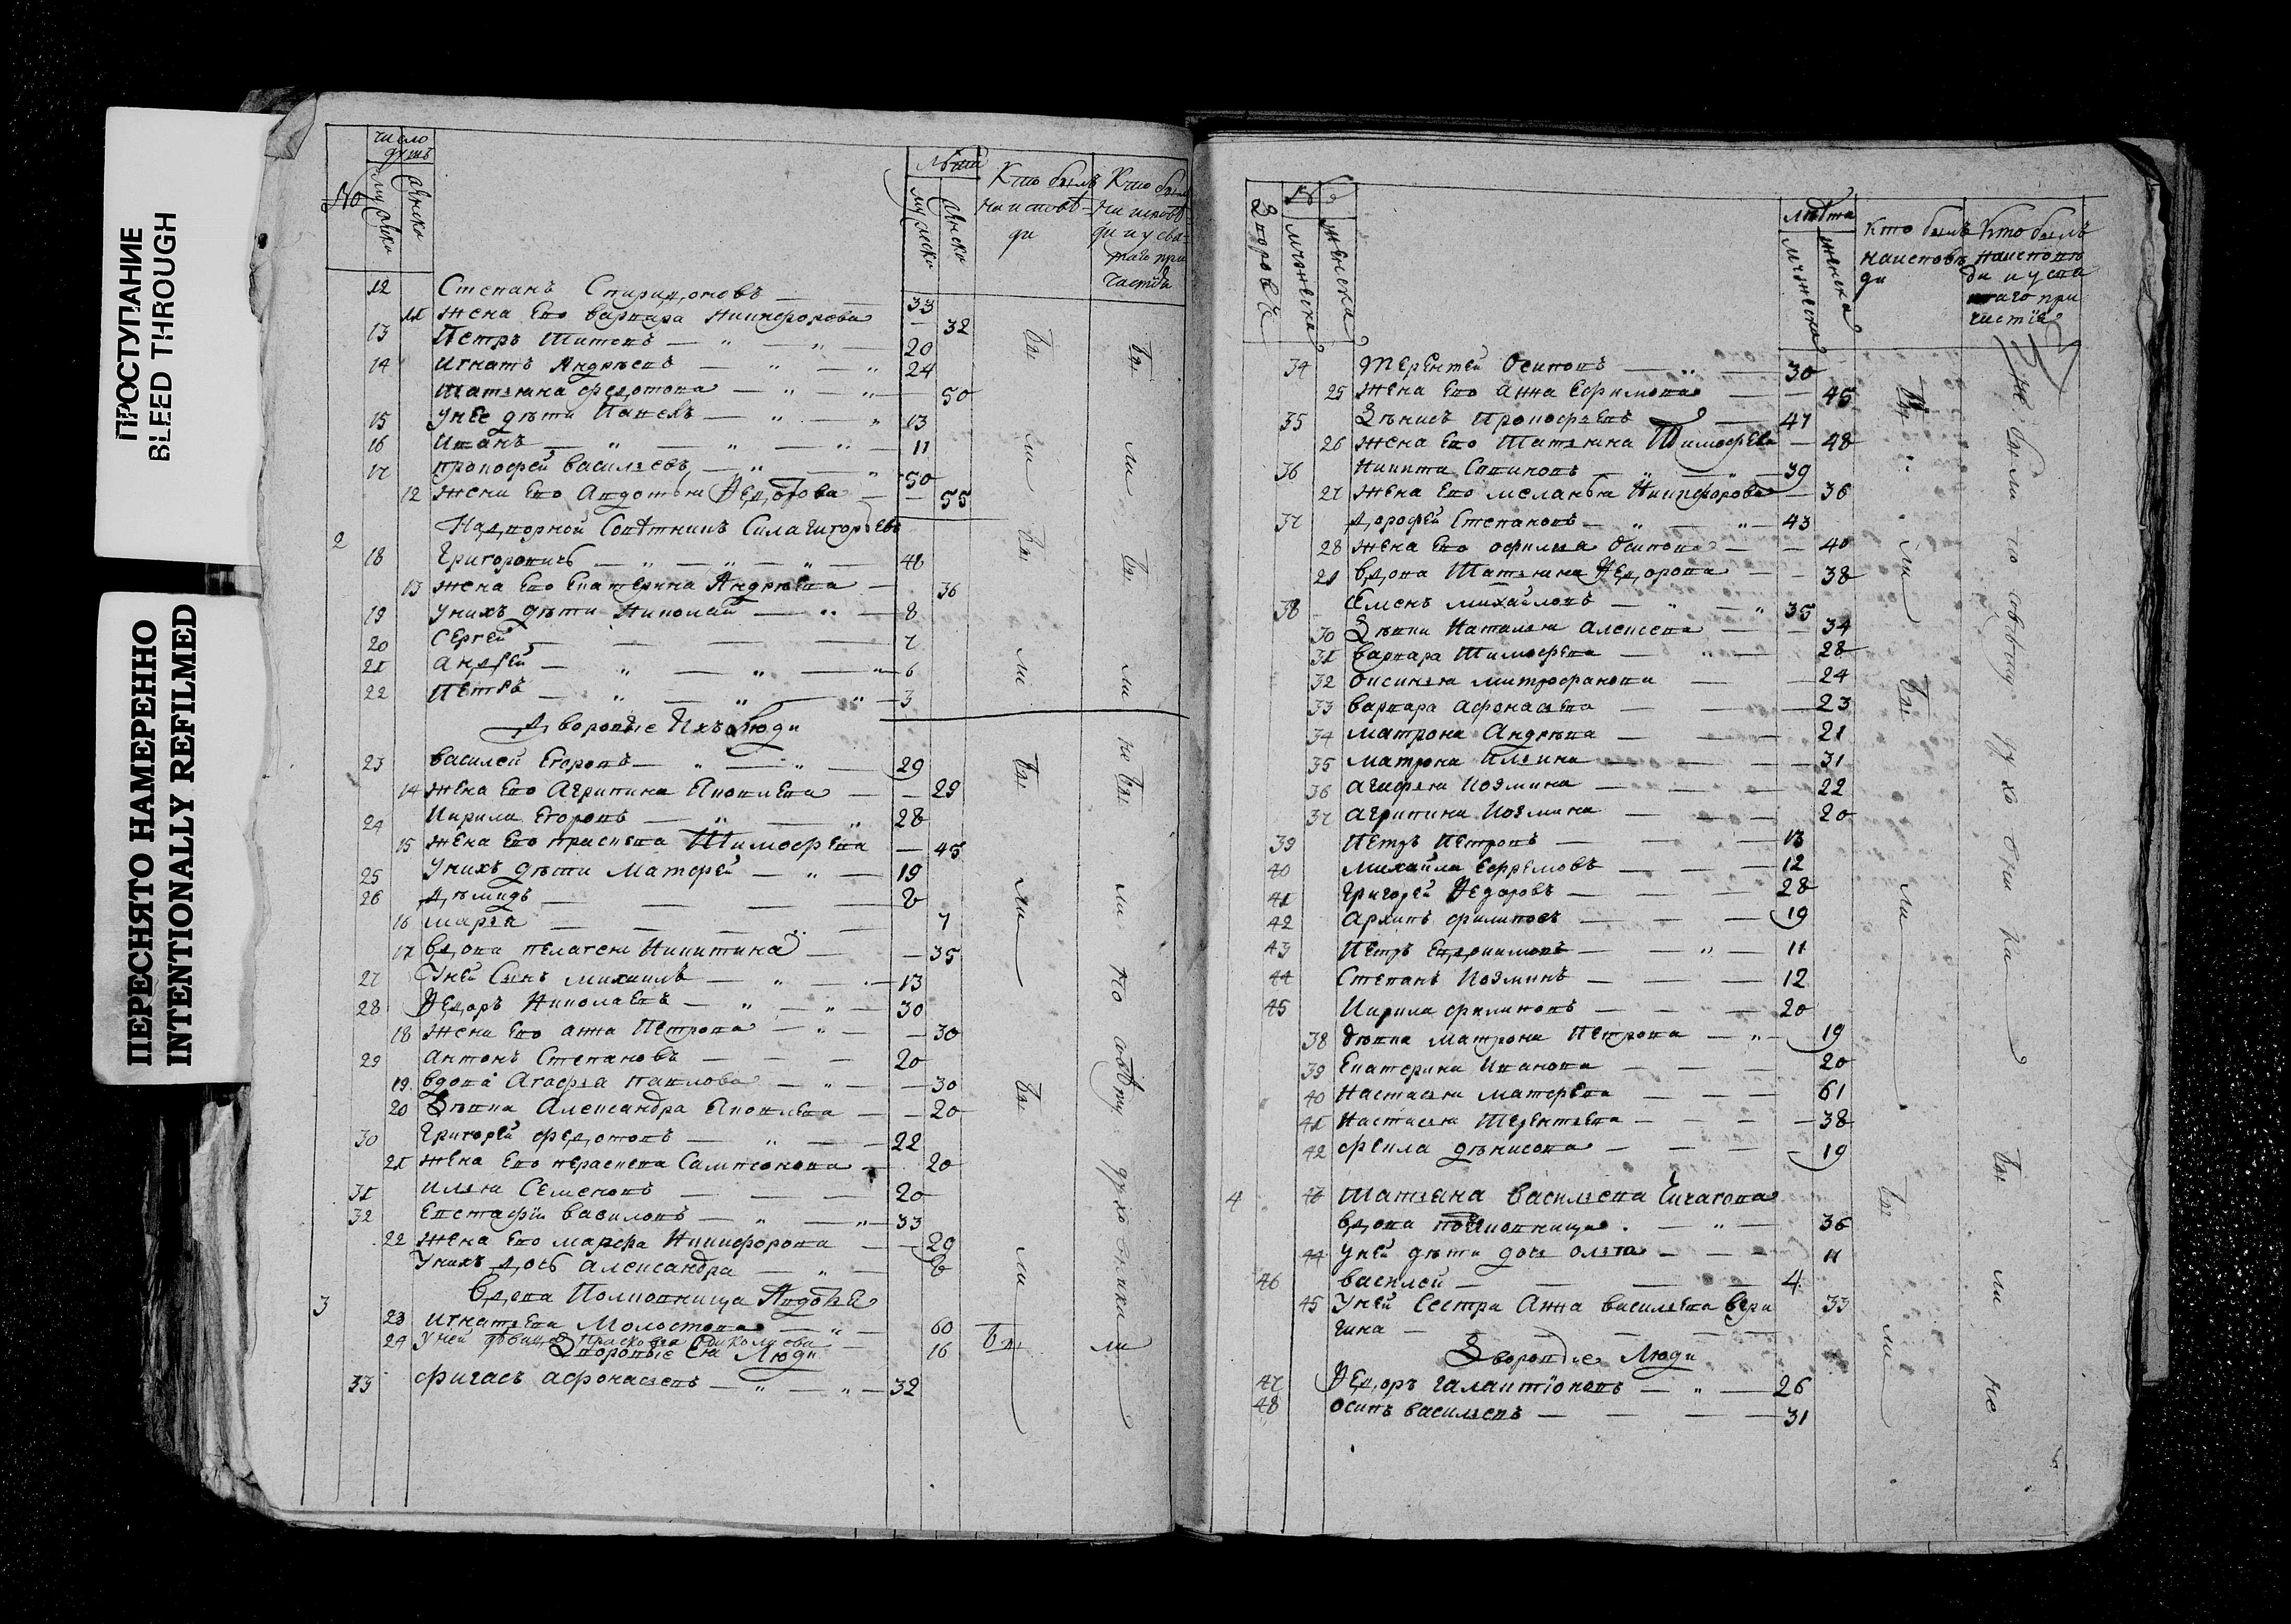 ПРОСТУПАНИЕ
BLEED THROUGH
ПЕРЕСНЯТО НАМЕРЕННО
INTENTIONALLY REFILMED
№
число душъ
мужска
женска
лѣта
мужска
женска
Кто былъ на исповѣди
Кто былъ на исповѣди и у святаго причастїя
12 Степанъ Спиридоновъ 33
11 жена Его варвара Никифорова 32
13 Петръ Титовъ 20
14 Игнатъ Андрѣевъ 24
Татьяна федотова 50
15 У нее дѣти Павелъ 13
16 Иванъ 11
17 прокофей васильевъ 50
12 жена Его Авдотья Федорова 55
2 Надворной Совѣтникъ Сила Григорьевъ
18 Григоровичь 48
13 жена Его Екатерина Андрѣева 36
19 У нихъ дѣти Николай 8
20 Сергей 7
21 андрей 6
22 Петръ 3
Дворовые Ихъ Люди
23 василей Егоровъ 29
14 жена Его Агрипина Яковлева 29
24 Кирила Егоровъ 28
15 жена Его прасковья Тимофѣева 45
25 У нихъ дѣти Матфей 19
26 Демидъ 8
16 марья 7
17 вдова пелагея Никитина 35
27 У ней Сынъ михаилъ 13
28 Федоръ Николаевъ 30
18 жена Его анна Петрова 30
29 антонъ Степановъ 20
19 вдова Агафья павлова 30
20 Дѣвка Александра Яковлева 20
30 Григорей федотовъ 22
21 жена Его параскева Сампсонова 20
31 илья Семеновъ 20
32 Евстафїй василовъ 33
22 жена Его марфа Никифорова 29
У нихъ дочь александра 8
3 Вдова Полковница Авдотья
23 игнатьева Молостова 60
24 У ней дѣвица Прасковья 16
Дворовые Ея Люди
33 афонасьевъ 32
бы ли
бы ли
не бы ли по совѣту духовника
Дворовъ
№
мужеска
женска
лѣта
мужеска
женска
кто былъ на исповѣди
Кто былъ на исповѣди и у святаго причастїя
34 Терентей Осиповъ 30
25 жена Его анна Ефимова 45
35 Дѣнисъ Прокофьевъ 47
26 жена Его Татьяна Тимофѣева 48
36 Никита Савиновъ 39
27 жена Его меланья Никифорова 36
37 дорофей Степановъ 43
28 жена Его офимья Осипова 40
29 вдова Татьяна Федорова 38
38 Семенъ михайловъ 35
30 Дѣвки Наталья алексева 34
31 варвара Тимофева 28
32 Оксинья митрофанова 24
33 варвара афонасьева 23
34 матрона Андрѣева 21
35 матрона Ильина 31
36 агафья Козмина 22
37 агрипина Козмина 20
39 Петръ Петровъ 13
40 михайла Ефремовъ 12
41 Григорей Федоровъ 28
42 архипъ филиповъ 19
43 Петръ Евдокимовъ 11
44 Степанъ Козминъ 12
45 Кирила филиповъ 20
38 Дѣвка матрона Петрова 19
39 Екатерина Иванова 20
40 Настасья матфеева 61
41 Настасья Терентьева 38
42 фекла дѣнисова 19
4 43 Татьяна васильева Чичагова
вдова полковница 36
44 У ней дѣти дочь ольга 11
46 василей 4
45 У ней Сестра Анна васильева вери
гина 33
Дворовые Люди
47 Федоръ галактїоновъ 26
48 осипъ васильевъ 31
бы ли
не были по совѣту духовника
бы ли
бы ли не